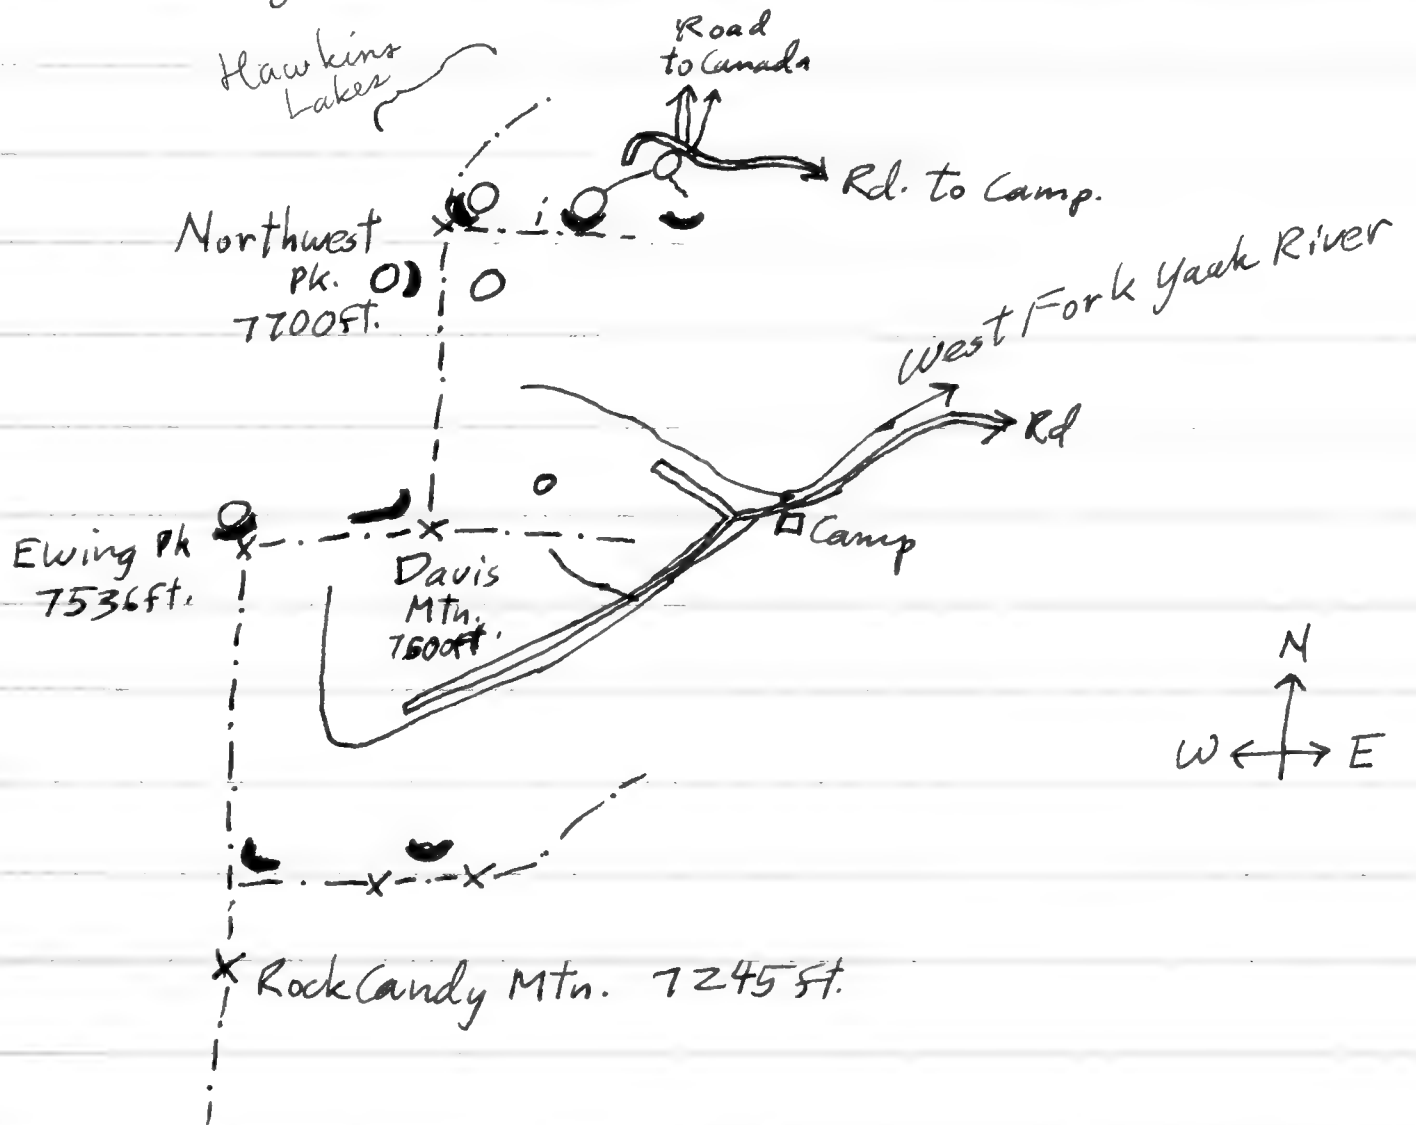 Road
to Canada
Hawkins
Lakes
Rd. to Camp.
Northwest
Pk.
7700ft.
West Fork Yaak River
Rd
Camp
Ewing Pk
7536ft.
Davis
Mtn.
7600ft.
N
W E
Rock Candy Mtn. 7245ft.